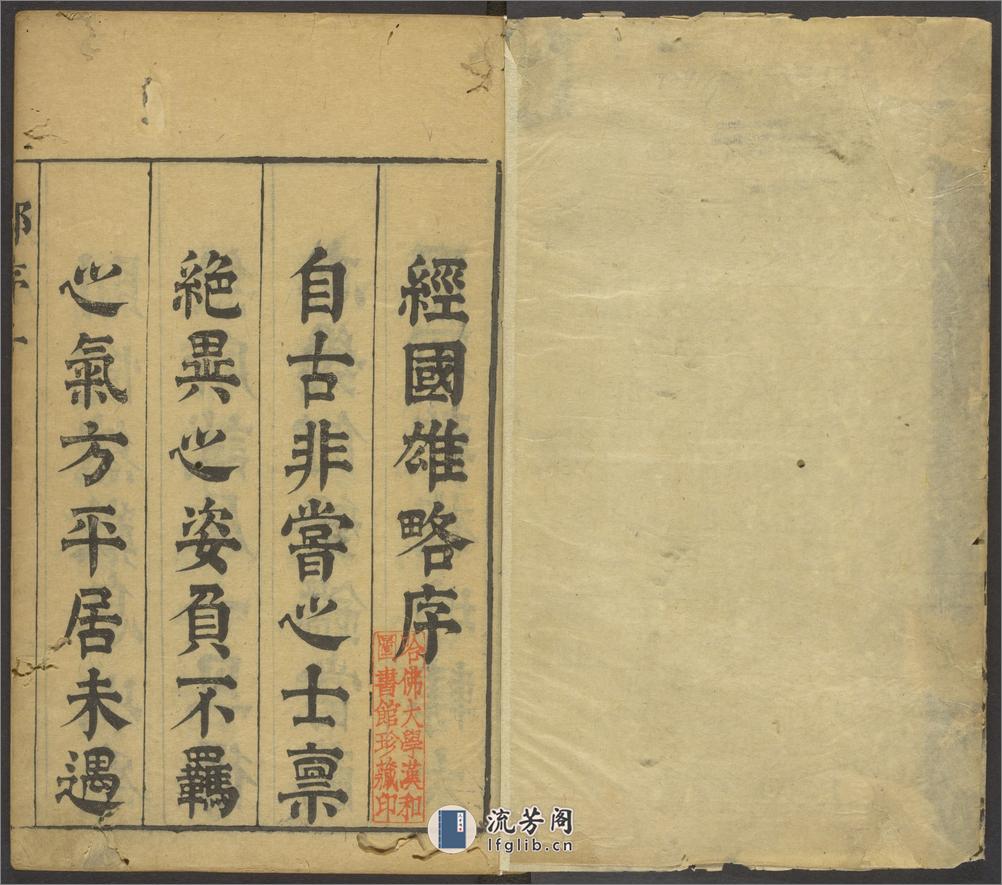 經國雄略序
自古非嘗之士禀
絶異之姿負不羈
之氣方平居未遇
序一
哈佛大學漢和
圖書館珍藏印
流芳阁
lfglib.cn